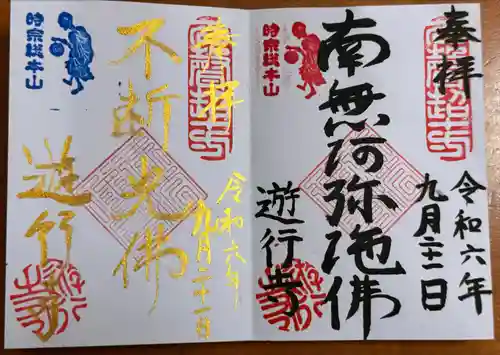 奉拝
令和六年
九月二十一日
南無阿弥陀佛
時宗総本山
遊行寺
奉拝
令和六年
九月二十一日
不断光佛
時宗総本山
遊行寺